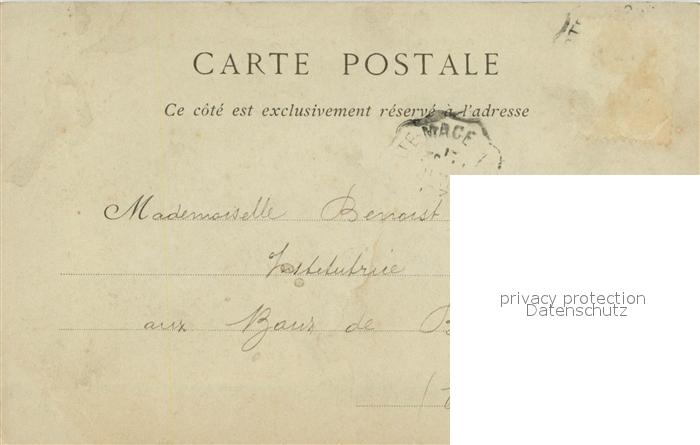 CARTE POSTALE
Ce côté est exclusivement réservé à l'adresse
Mademoiselle Benoist
Institutrice
aux Baux de B
privacy protection
Datenschutz